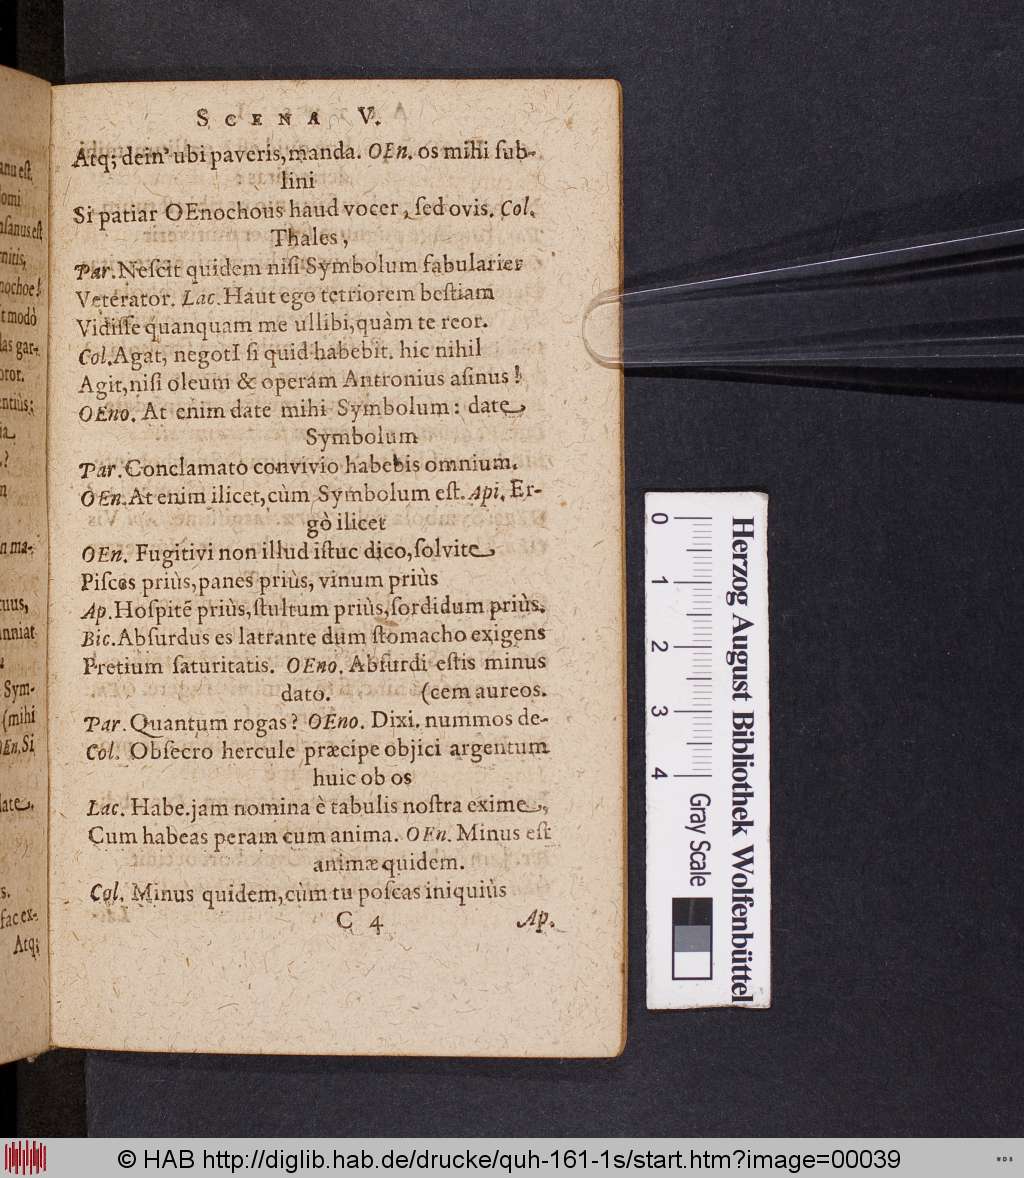 SCENA V.
Atq; dein' ubi paveris, manda. OEn. os mihi sub-
lini
Si patiar OEnochous haud vocer, sed ovis. Col.
Thales,
Par. Nescit quidem nisi Symbolum fabularier
Veterator. Lac. Haut ego tetriorem bestiam
Vidisse quanquam me ullibi, quàm te reor.
Col. Agat, negotI si quid habebit. hic nihil
Agit, nisi oleum & operam Antronius asinus!
OEno. At enim date mihi Symbolum: date
Symbolum
Par. Conclamato convivio habebis omnium.
OEn. At enim ilicet, cùm Symbolum est. Api. Er-
gò ilicet
OEn. Fugitivi non illud istuc dico, solvite
Pisces priùs, panes priùs, vinum priùs
Ap. Hospitē priùs, stultum priùs, sordidum priùs.
Bic. Absurdus es latrante dum stomacho exigens
Pretium saturitatis. OEno. Absurdi estis minus
dato. (cem aureos.
Par. Quantum rogas? OEno. Dixi. nummos de-
Col. Obsecro hercule præcipe objici argentum
huic ob os
Lac. Habe. jam nomina è tabulis nostra exime,
Cum habeas peram cum anima. OEn. Minus est
animæ quidem.
Col. Minus quidem, cùm tu poscas iniquiùs
C 4 Ap.
anu est.
nochoe!
t modò
las gar-
n ma-
Sym-
(mihi
OEn. Si
fac ex-
Atq;
0 1 2 3 4
Gray Scale
Herzog August Bibliothek Wolfenbüttel
© HAB http://diglib.hab.de/drucke/quh-161-1s/start.htm?image=00039